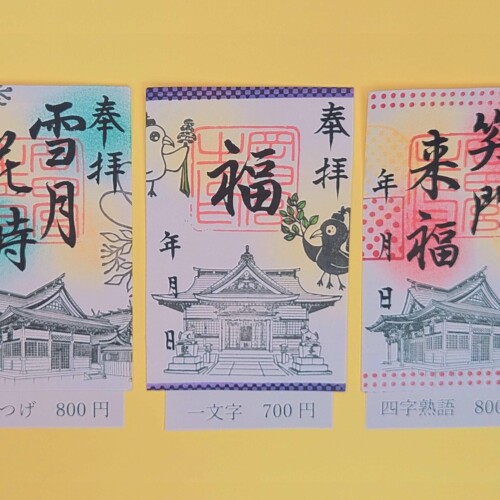 奉拝
雪月
花時
つげ 800円
奉拝
福
年月日
一文字 700円
笑門
来福
年月日
四字熟語 800